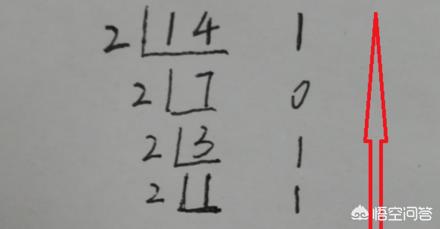 2 14 1
2 7 0
2 3 1
2 1 1
悟空问答